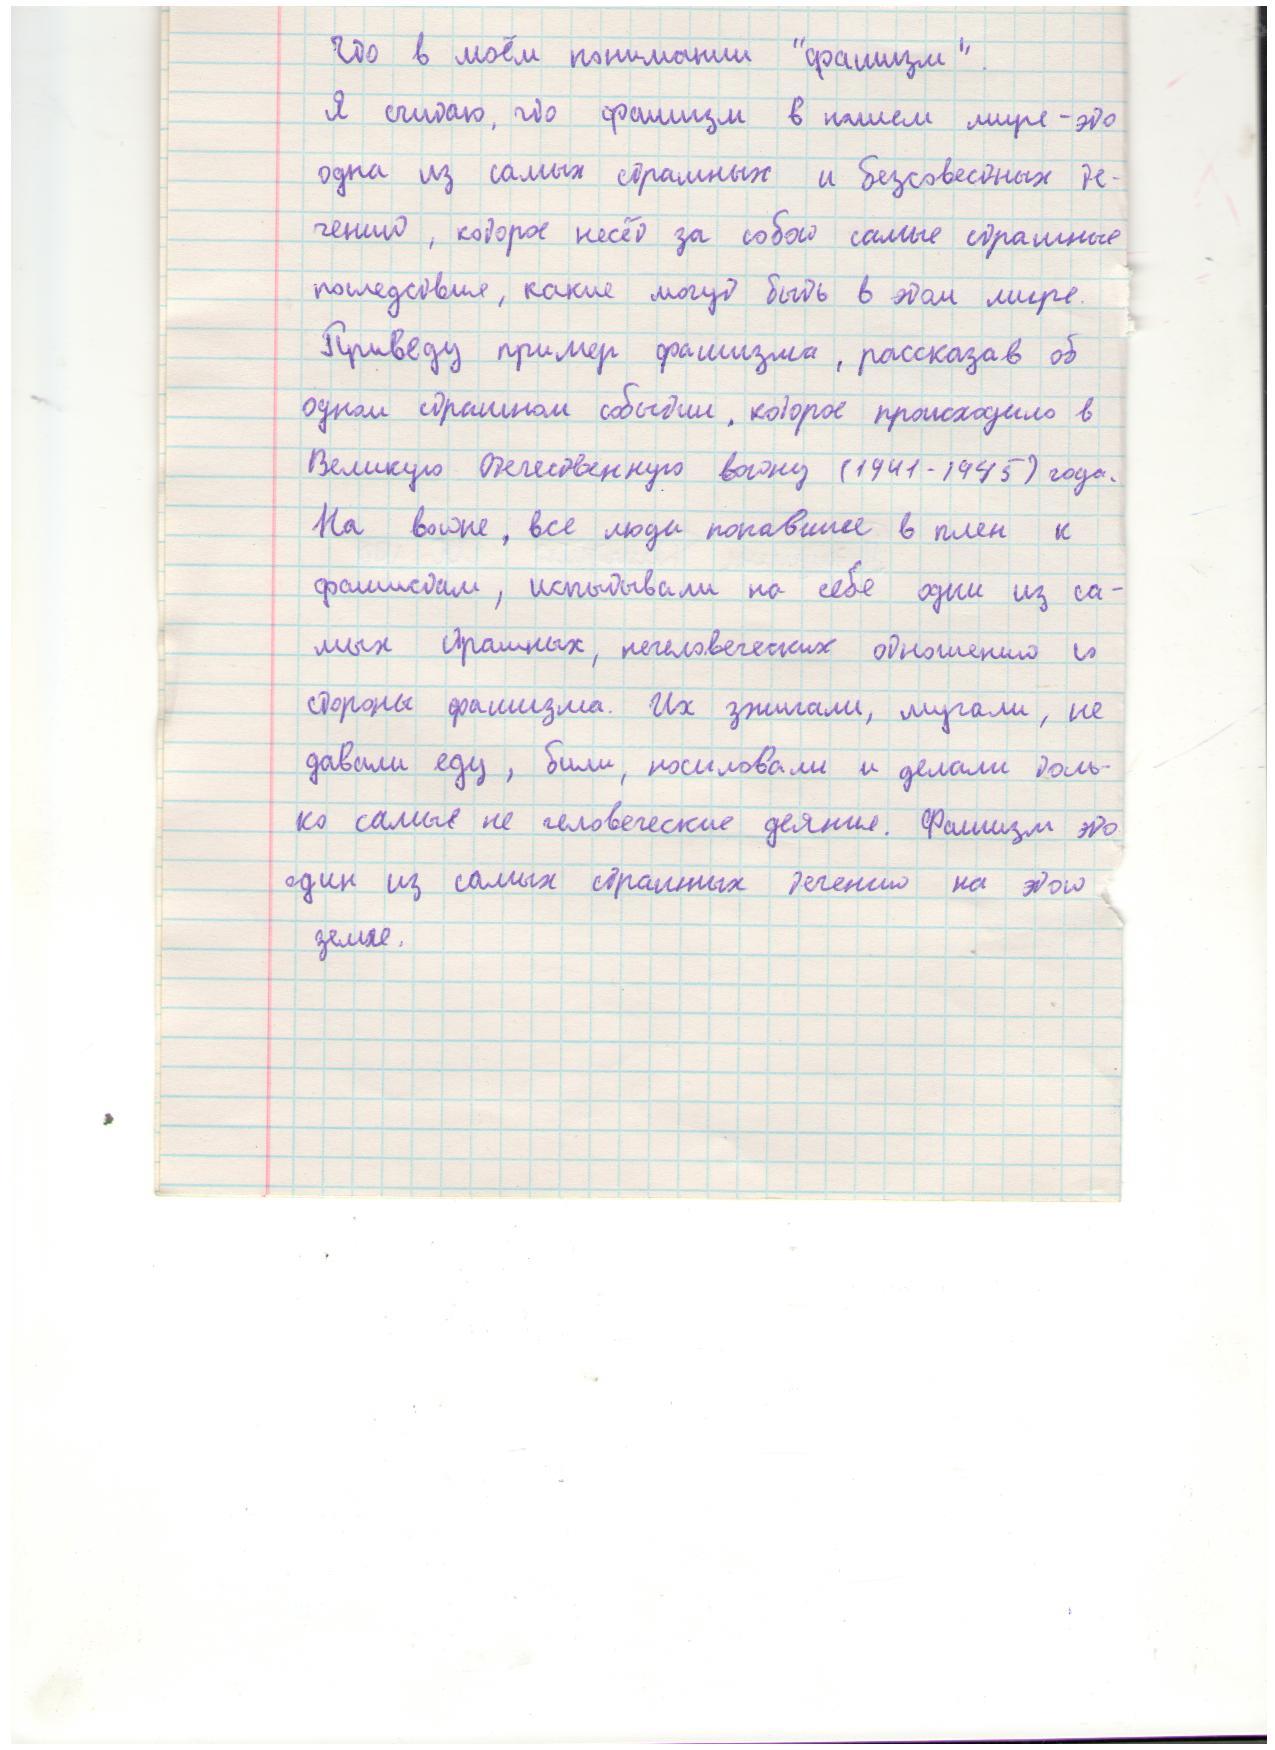 Что в моём понимании "фашизм".
Я считаю, что фашизм в нашем мире - это
одна из самых страшных и безсовестных те-
чений, которое несёт за собой самые страшные
последствия, какие могут быть в этом мире.
Приведу пример фашизма, рассказав об
одном страшном событии, которое происходило в
Великую Отечественную войну (1941-1945) года.
На войне, все люди попавшие в плен к
фашистам, испытывали на себе одни из са-
мых страшных, нечеловеческих отношений со
стороны фашизма. Их зжигали, мучали, не
давали еду, били, носиловали и делали толь-
ко самые не человеческие деяния. Фашизм это
один из самых страшных течений на этой
земле.